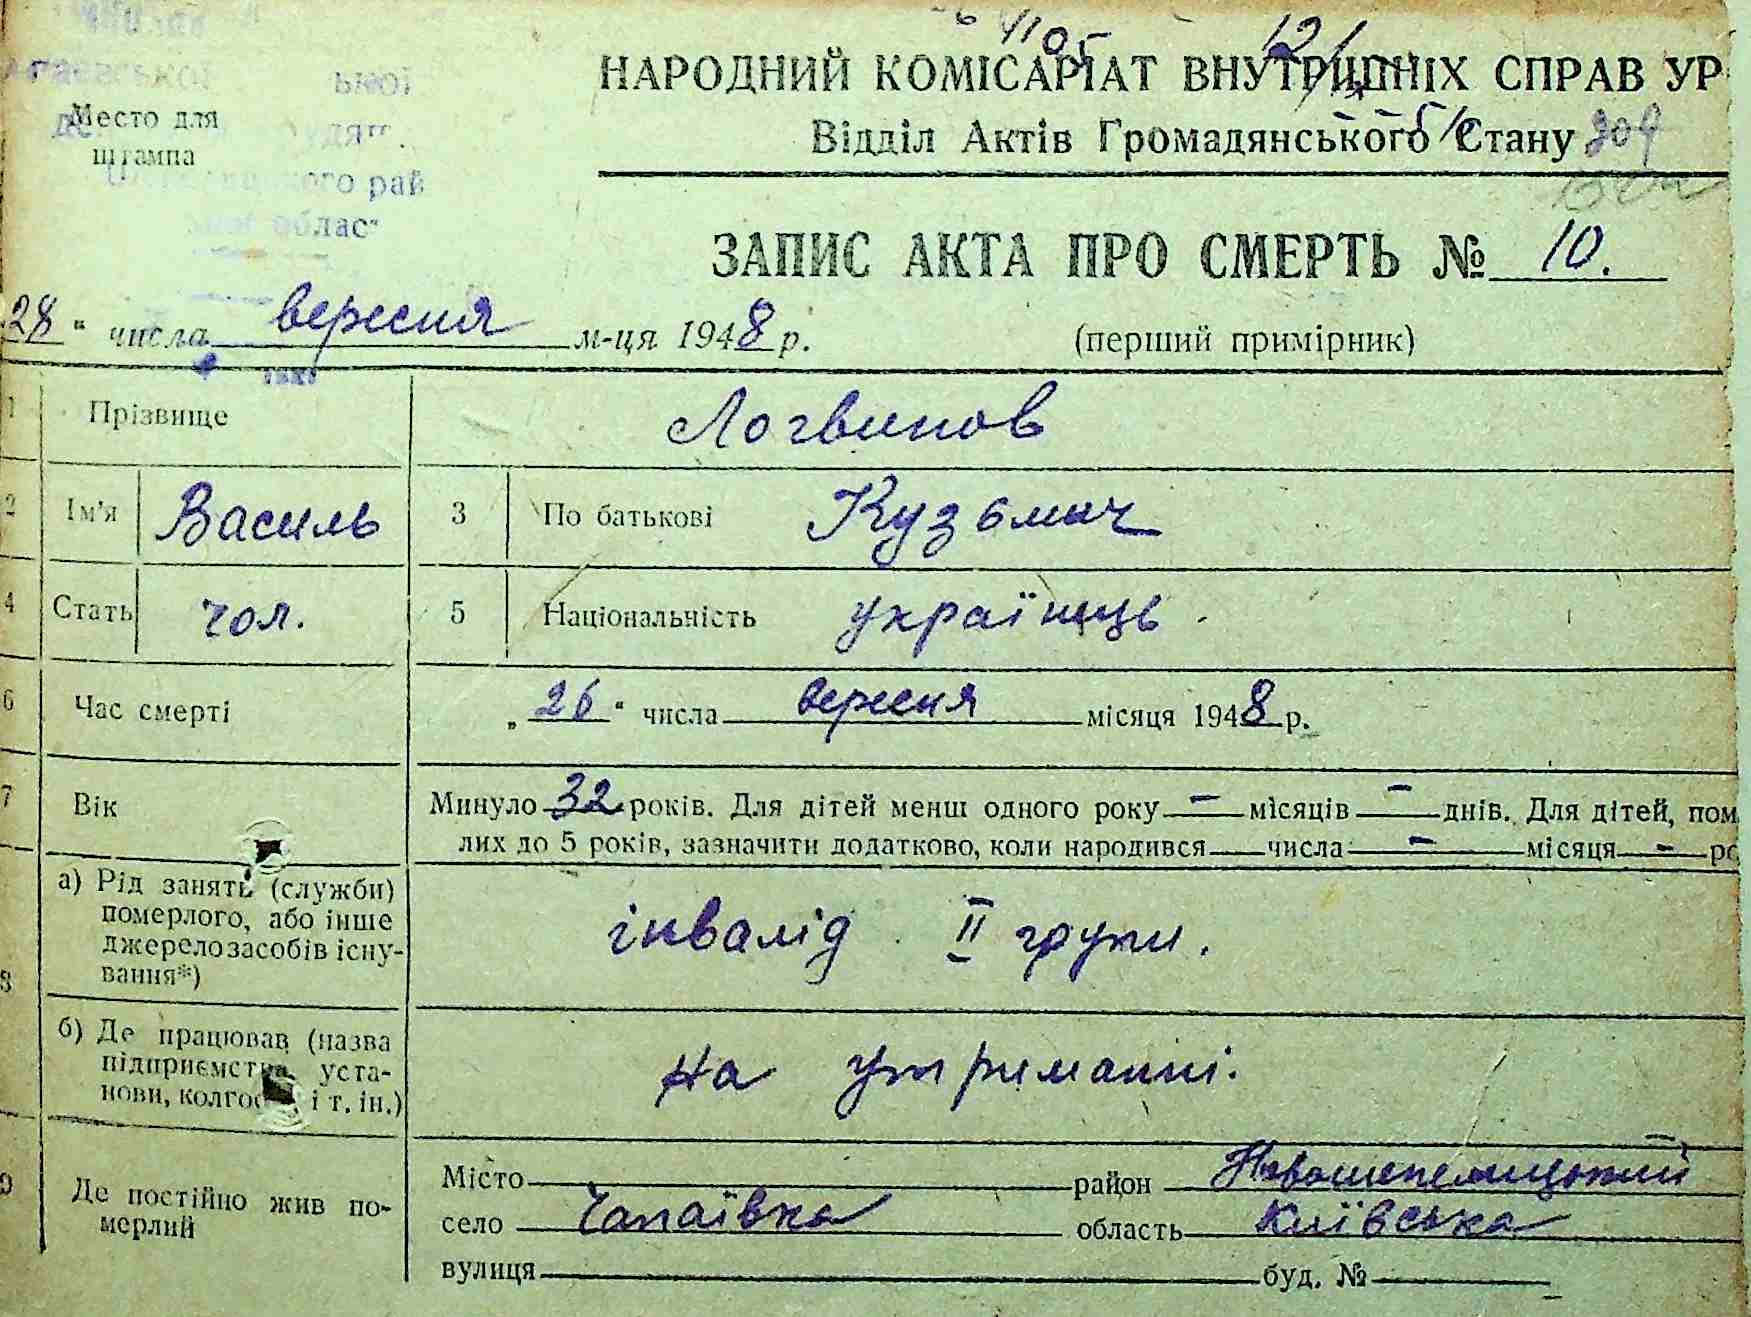 Место для
штампа
НАРОДНИЙ КОМІСАРІАТ ВНУТРІШНІХ СПРАВ УР
Відділ Актів Громадянського Стану
ЗАПИС АКТА ПРО СМЕРТЬ № 10.
28 " числа вересня м-ця 1948 р. (перший примірник)
1 Прізвище Логвинов
2 Ім'я Василь 3 По батькові Кузьмич
4 Стать чол. 5 Національність українець.
6 Час смерті „ 26 " числа вересня місяця 1948 р.
7 Вік Минуло 32 років. Для дітей менш одного року – місяців – днів. Для дітей, пом
лих до 5 років, зазначити додатково, коли народився числа – місяця – ро
8 а) Рід занять (служби)
померлого, або інше
джерело засобів існу-
вання*)
інвалід II групи.
б) Де працював (назва
підприємства, уста-
нови, колгоспу і т. ін.)
на утриманні.
9 Де постійно жив по-
мерлий
Місто район Новошепелицький
село Чапаївка область Київська
вулиця буд. №